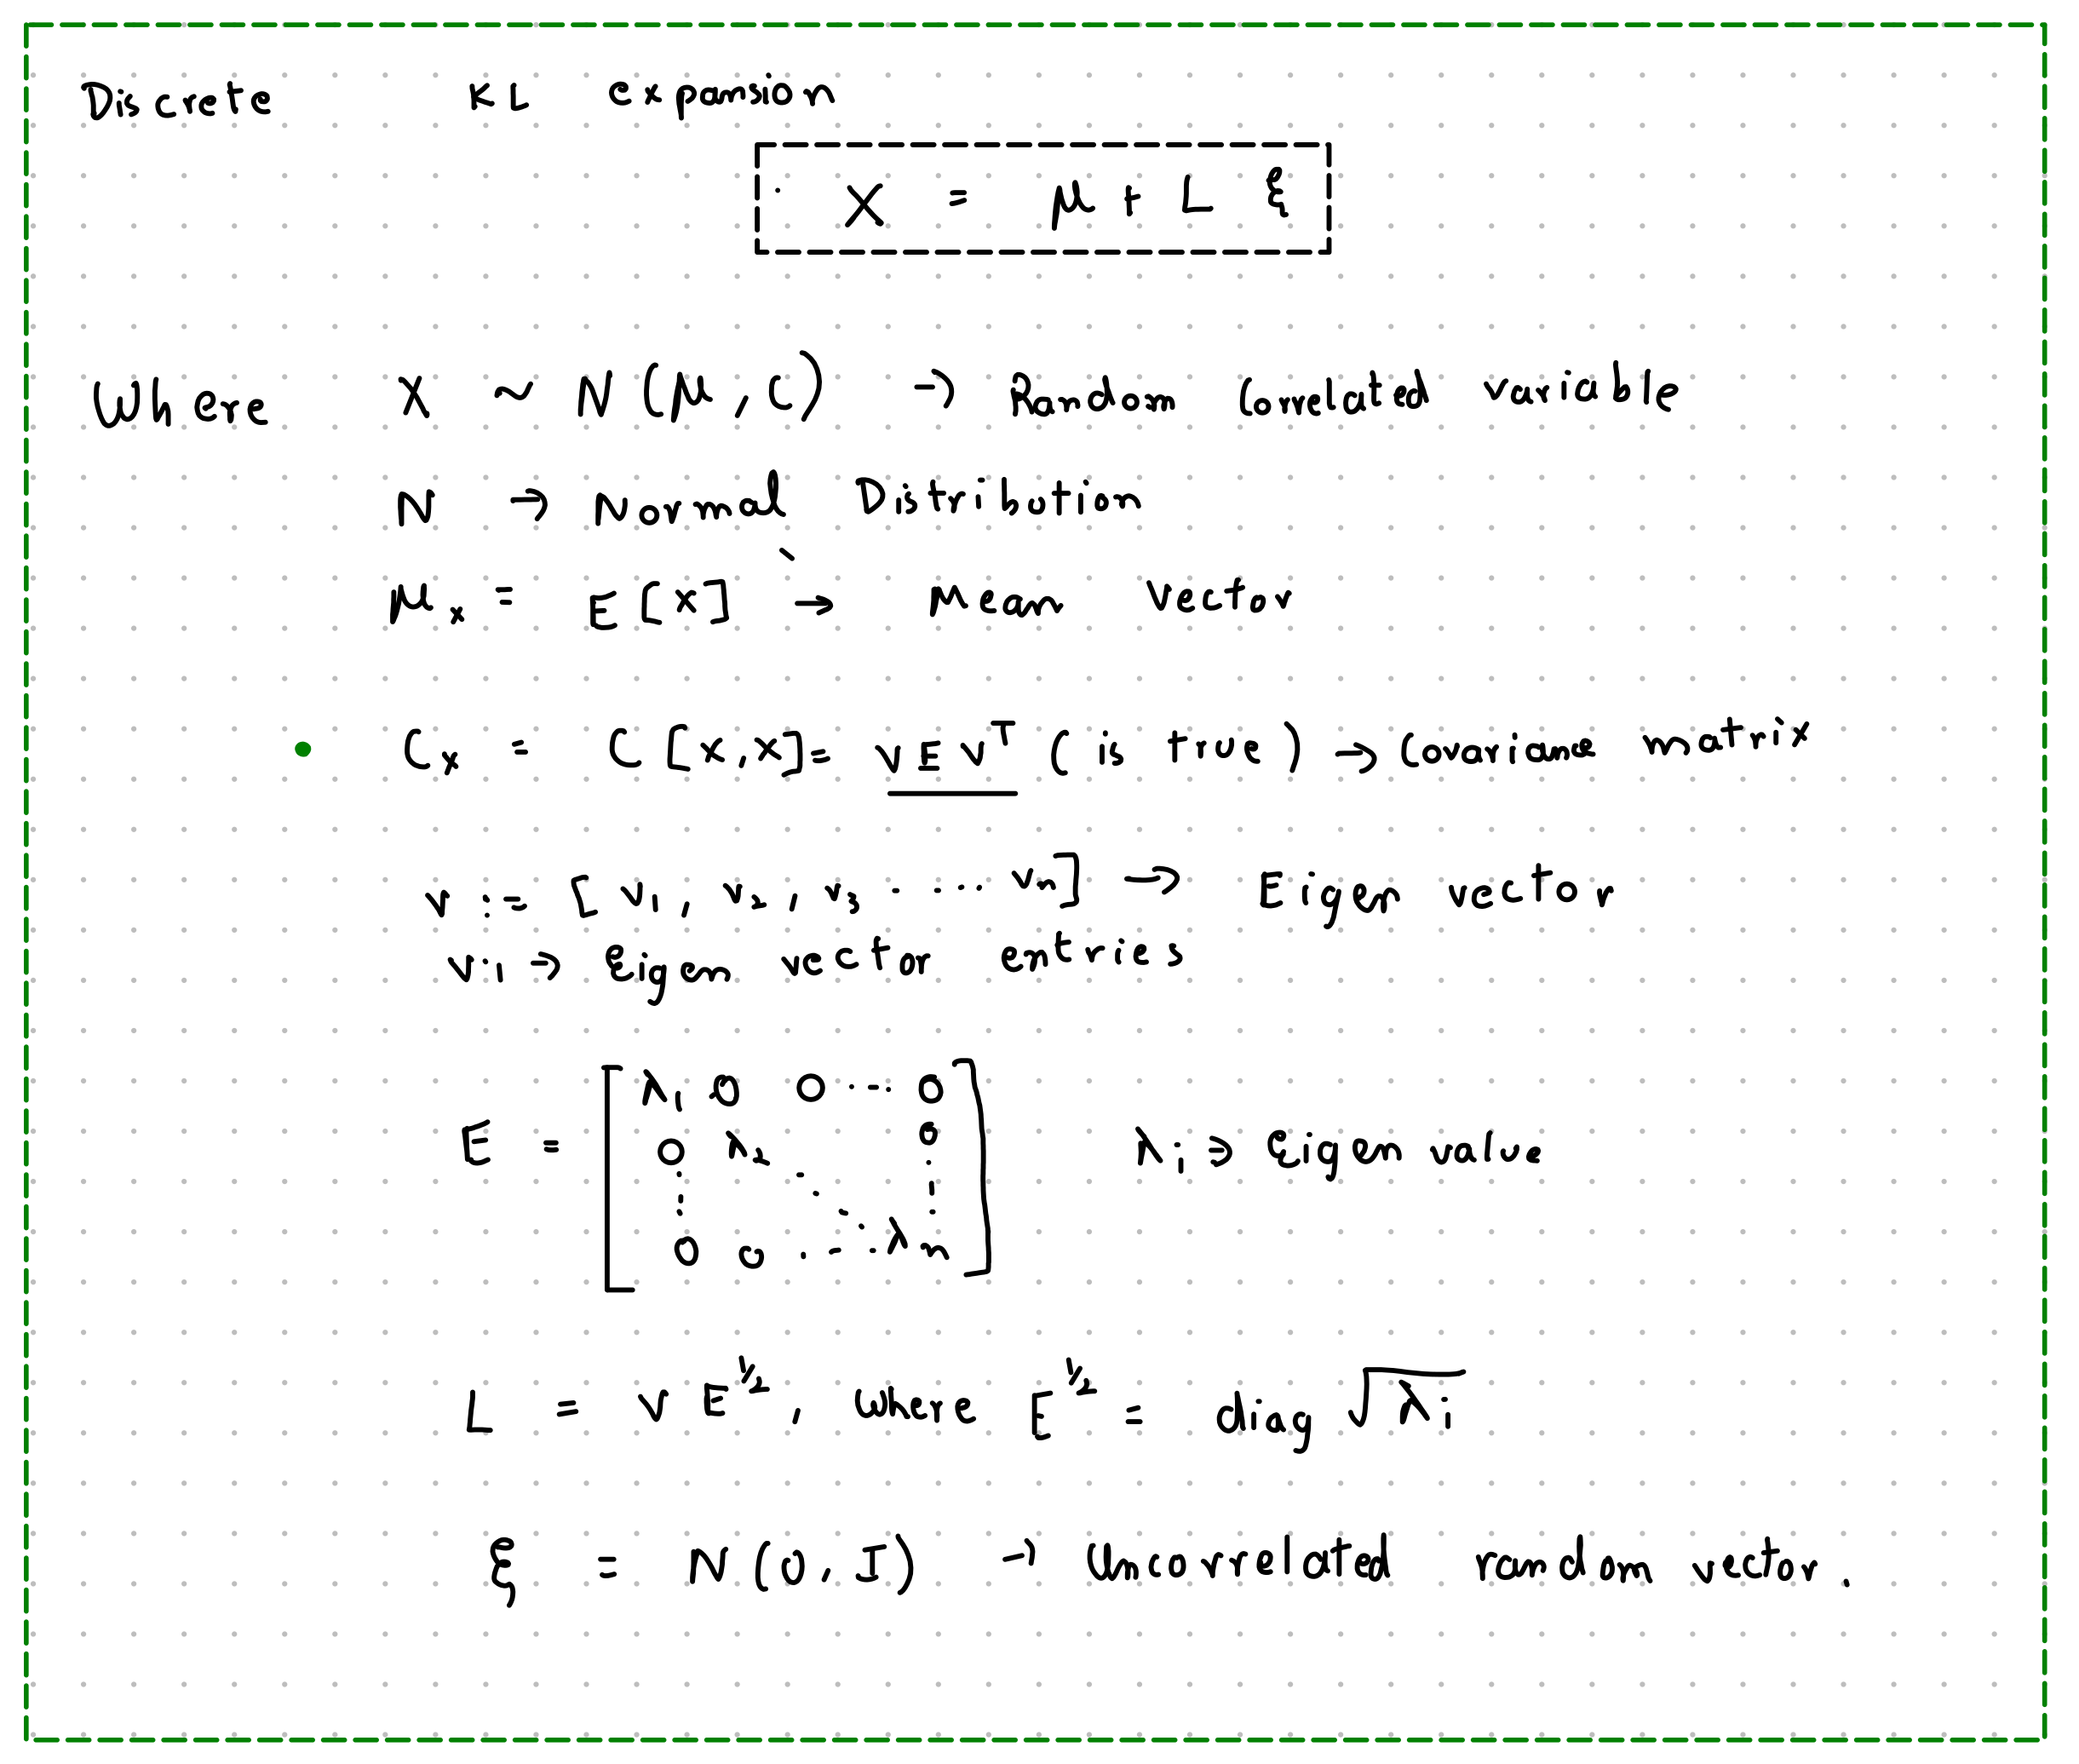 Discrete KL expansion
X = μ + L ξ
Where X ~ N (μ, C) → Random Correlated variable
N → Normal Distribution
μₓ = E[X] → Mean Vector
Cₓ = C[X,X] = V E Vᵀ (is true) → Covariance matrix
V := [V₁, V₂, V₃ ..... Vₙ] → Eigen vector
Vᵢ,ᵢ → Eigen vector entries
E = [ λ₁ 0 0 ... 0
0 λ₂ 0
0 0 .... λₙ ] λᵢ → Eigen value
L = V E^1/2, where E^1/2 = diag √λᵢ
ξ = N(0, I) → Uncorrelated random vector.